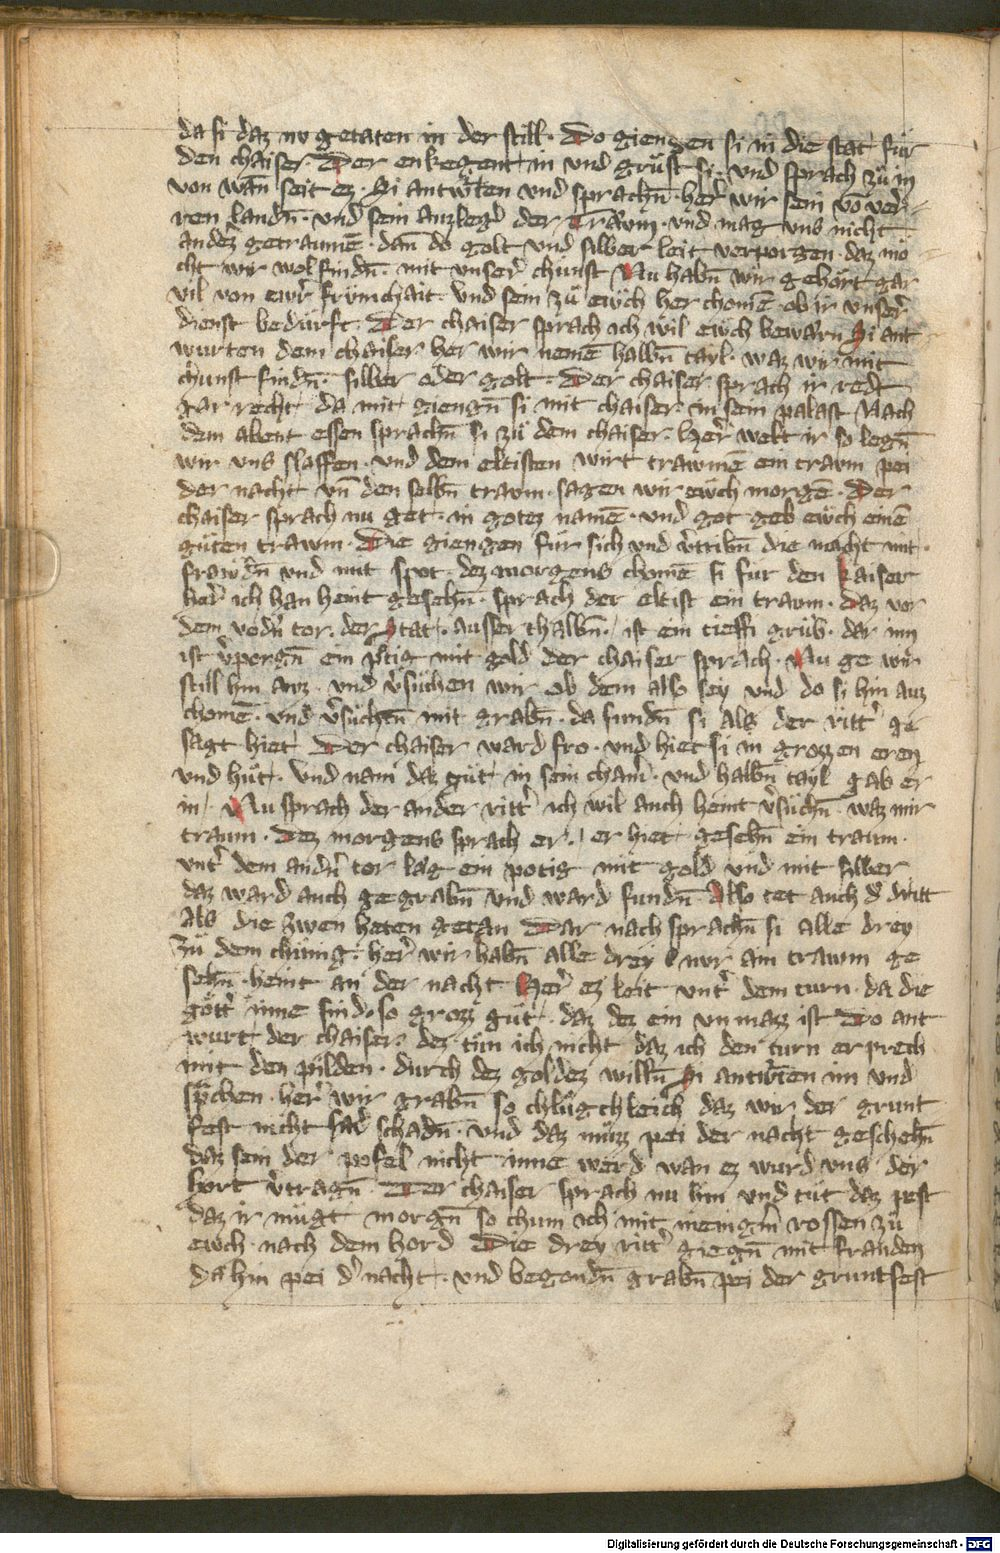 da si daz nv getaten in der still · Do giengen si in die stat für
den chaiser · Der enkegent in vnd grüst si · vnd sprach zü in
von wan̄ seit ez · Si antwͤrten vnd sprachn̄ · her̕ wir sein vō ver
ren landn̄ · vnd sein auzleg̕ der Träwm · vnd mag vns nicht
anders̕ getraumē · dan̄ do golt vnd silber leit verporgen · daz mö
cht wir wol findn̄ · mit vnser̕ chunst Nu habn̄ wir gehört gar
vil von ewr̕ frümchait · vnd sein zü ewch her chomē · ob ir vnser̕
dienst bedürft · Der chaiser sprach ich wil ewch bewärn Si ant
wurten dem chaiser her wir nemē halbn̄ tayl · waz wir mit
chunst findn̄ · silber oder golt · Der chaiser sprach ir redt
gar recht · da mit giengn̄ si mit chaiser · in sein palast Nach
dem abent essen sprachn̄ si zü dem chaiser · Her̕ welt ir so legn̄
wir vns slaffen · vnd dem eltisten wirt trawmē ein trawm pei
der nacht vn̄ den selbn̄ trawm · sagen wir ewch morgē · Der
chaiser sprach nu get · in gotez namē · vnd got geb ewch einē
güten trawm · Die giengen für sich vnd v̕tribn̄ die nacht mit ·
fräwdn̄ vnd mit spot · dez morgens chomē si fur den kaiser
her̕ ich han heint gesehn̄ · sprach der eltist ein trawm · Daz vor
dem vodn̕ tor · der Stat · ausserthalbn̄ · ist ein tieffi grüb · dar inn
ist v̕porgn̄ ein potig mit gold der chaiser sprach · Nu ge wir
still hin auz · vnd v̕süchen wir ob dem also sey vnd do si hin auz
chomē · vnd v̕süchtn̄ mit grabn̄ · da fundn̄ si als der ritt̕ ge
sagt hiet Der chaiser ward fro · vnd hiet si in grozzen eren
vnd hüt · vnd nam daz güt · in sein cham̕ · vnd halbn̄ tayl gab er
in · Nu sprach der ander ritt̕ ich wil auch heint v̕süchn̄ · waz mir
traum · Dez morgens sprach er · er hiet gesehn̄ ein traum ·
vnt̕ dem andn̕ tor läg ein potig mit gold vnd mit silber
daz ward auch gegrabn̄ vnd ward fundn̄ Also tet auch d̕ dritt
als die zwen heten getan Dar nach sprachn̄ si alle drey
zü dem chünig · her̕ wir habn̄ alle drey nvr ain trawm ge
sehn̄ · heint an der nacht Her̕ ez leit vnt̕ dem turn · da die
gött̕ inne sind · so grozz güt · daz dez ein vnmazz ist Do ant
wurt der chaiser · dez tün ich nicht daz ich den turn erprech
mit den pilden · durch dez goldez willn̄ Si antwͤrten im vnd
sp̄chen · her̕ wir grabn̄ so chlügchleich daz wir der grunt
fest nicht schadn̄ · vnd daz müzz pei der nacht geschehn̄
daz sein der pofel nicht inne werd wan ez wurd vns der
hort v̕tragn̄ · Der chaiser sprach nu hin vnd tüt daz pest
daz ir mügt morgn̄ so chum ich mit meinign̄ rossen zü
ewch · nach dem hord Die drey ritt̕ giegn̄ mit frauden
da hin pei d̕ nacht · vnd begondn̄ grabn̄ pei der gruntfest
Digitalisierung gefördert durch die Deutsche Forschungsgemeinschaft - DFG